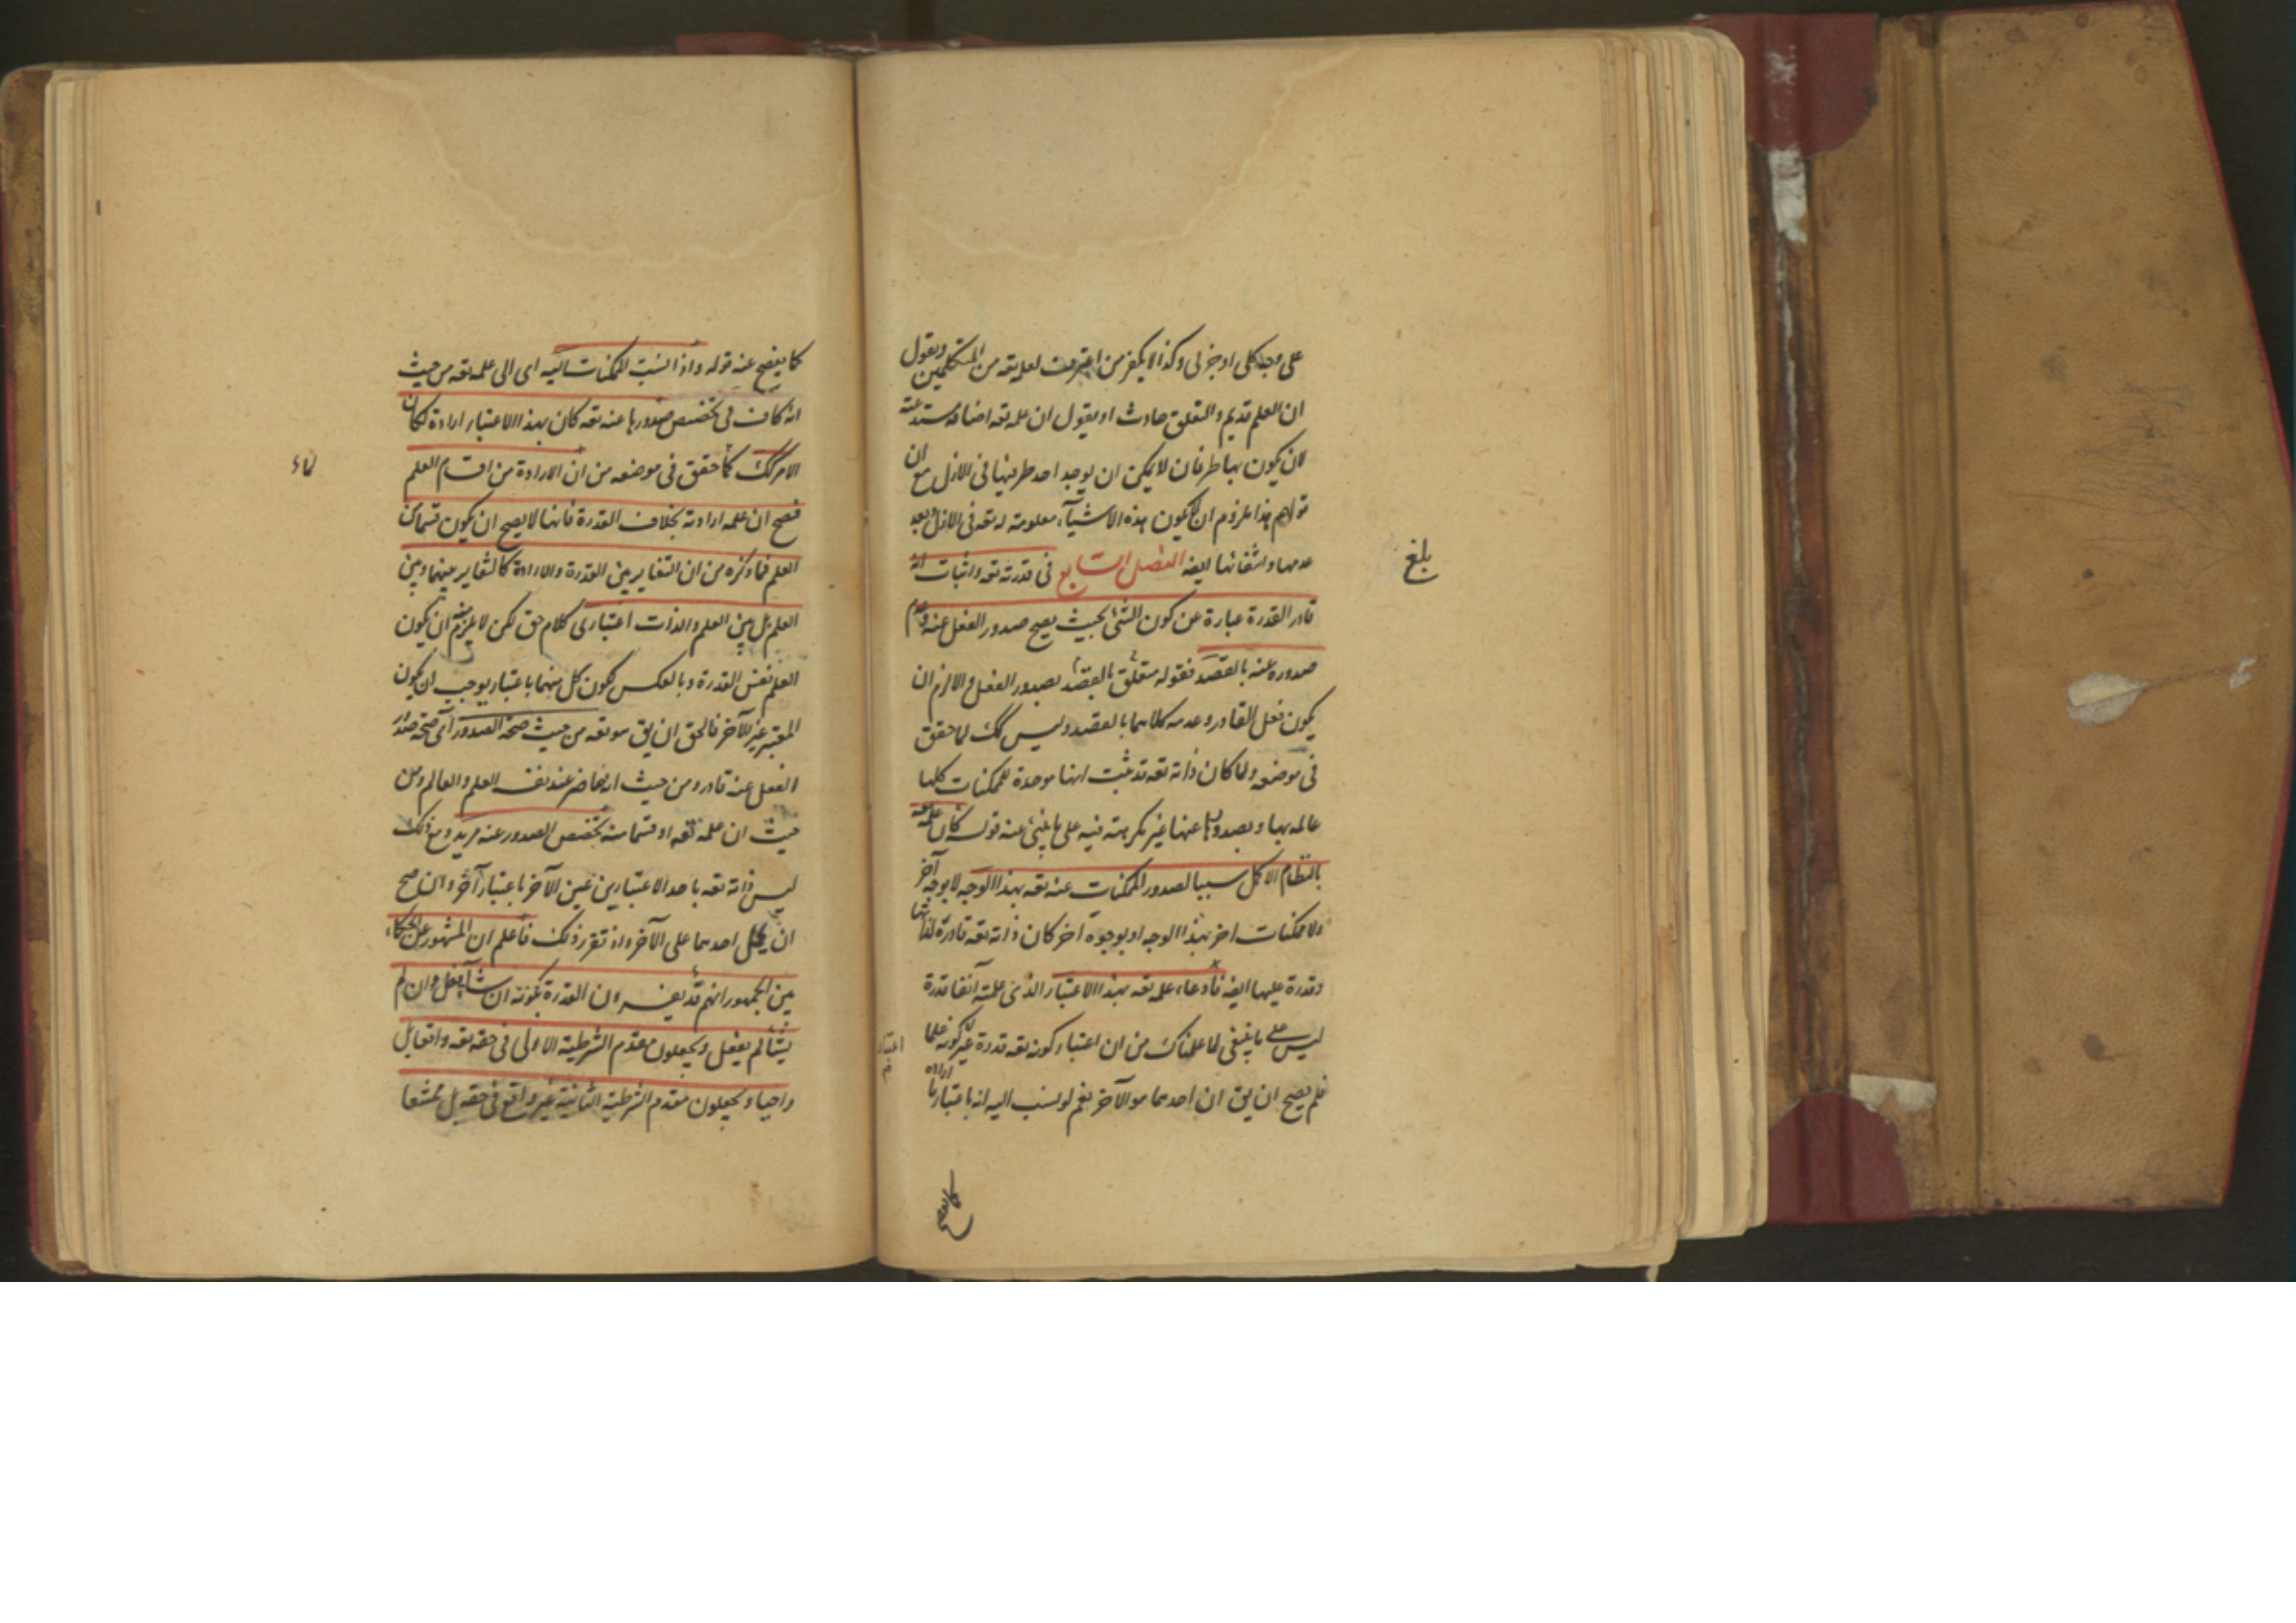 على وجه كلى او جزئى وكذا لا يكفر من اعترف لعلمه تعه من المتكلمين ويقول
ان العلم قديم والتعلق حادث او يقول ان علمه تعه اضافة مستدعية
لان يكون بها طرفان لا يمكن ان يوجد احد طرفيها فى الازل مع ان
قولهم هذا ملزوم ان لا يكون هذه الاشيآء معلومة له تعه فى الازل وبعد
عدمها وانتفائها ايضه الفصل السابع فى قدرته تعه واثبات انه
قادر القدرة عبارة عن كون الشئ بحيث يصح صدور الفعل عنه وعدم
صدوره عنه بالقصد فقوله متعلق بالقصد بصدور الفعل والا لزم ان
يكون فعل القادر وعدمه كلاهما بالقصد وليس كك لما حقق
فى موضعه ولما كان ذاته تعه قد ثبت انها موجدة للممكنات كلها
عالمه بها وبصدورها عنها غير مكرهة فيه على ما ينبئ عنه قوله كان علمه تعه
بالنظام الاكمل سببا لصدور الممكنات عنه تعه بهذا الوجه لا بوجه آخر
ولا ممكنات اخر بهذا الوجه او بوجوه اخر كان ذاته تعه قادرة لذاتها
وقدرة عليها ايضه فادعاء علمه تعه بهذا الاعتبار الذى علمته آنفا قدرة
ليس على ما ينبغى لما علمناك من ان اعتبار كونه تعه قدرة غير كونه علما
فلم يصح ان يق ان احدهما هو الآخر نعم لو نسب اليه انه باعتبارنا ارادة
كما يفصح
بلغ
كما يفصح عنه قوله واذا نسبت الممكنات اليه اى الى علمه تعه من حيث
انه كاف فى تخصص صدورها عنه تعه كان بهذا الاعتبار ارادة لكان
الامر كك كما حقق فى موضعه من ان الارادة من اقسام العلم
فصح ان علمه ارادته بخلاف القدرة فانها لا يصح ان يكون قسما من
العلم فما ذكره من ان التغاير بين القدرة والارادة كالتغاير بينهما وبين
العلم بل بين العلم والذات اعتبارى كلام حق لكن لا يلزم منه ان يكون
العلم نفس القدرة وبالعكس لكون كل منهما باعتبار يوجب ان يكون
المعتبر غير الآخر فالحق ان يق هو تعه من حيث صحة الصدور اى صحة صدور
الفعل عنه قادر ومن حيث انه حاضر عند نفسه العلم والعالم ومن
حيث ان علمه تعه او قسما منه تخصص الصدور عنه مريد ومع ذلك
ليس ذاته تعه باحد الاعتبارين عين الآخر باعتبار آخر وانما صح
ان يحمل احدهما على الآخر واذ تقرر ذلك فاعلم ان المشهور عن الحكماء
بين الجمهور انهم قد يفسرون القدرة بكونه ان شآء يفعل وان لم
يشأ لم يفعل ويجعلون مقدم الشرطية الاولى فى حقه تعه واقعا بل
واجبا ويجعلون مقدم الشرطية الثانية غير واقع فى حقه بل ممتنعا